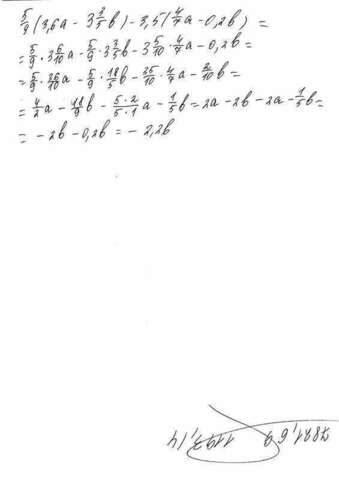 5/9 (3,6a - 3 3/5 b) - 3,5 (4/7 a - 0,2b) =
= 5/9 · 3 6/10 a - 5/9 · 3 3/5 b - 3 5/10 · 4/7 a - 0,2b =
= 5/9 · 36/10 a - 5/9 · 18/5 b - 35/10 · 4/7 a - 2/10 b =
= 4/2 a - 18/9 b - 5·2/5·1 a - 1/5 b = 2a - 2b - 2a - 1/5 b =
= - 2b - 0,2b = - 2,2b